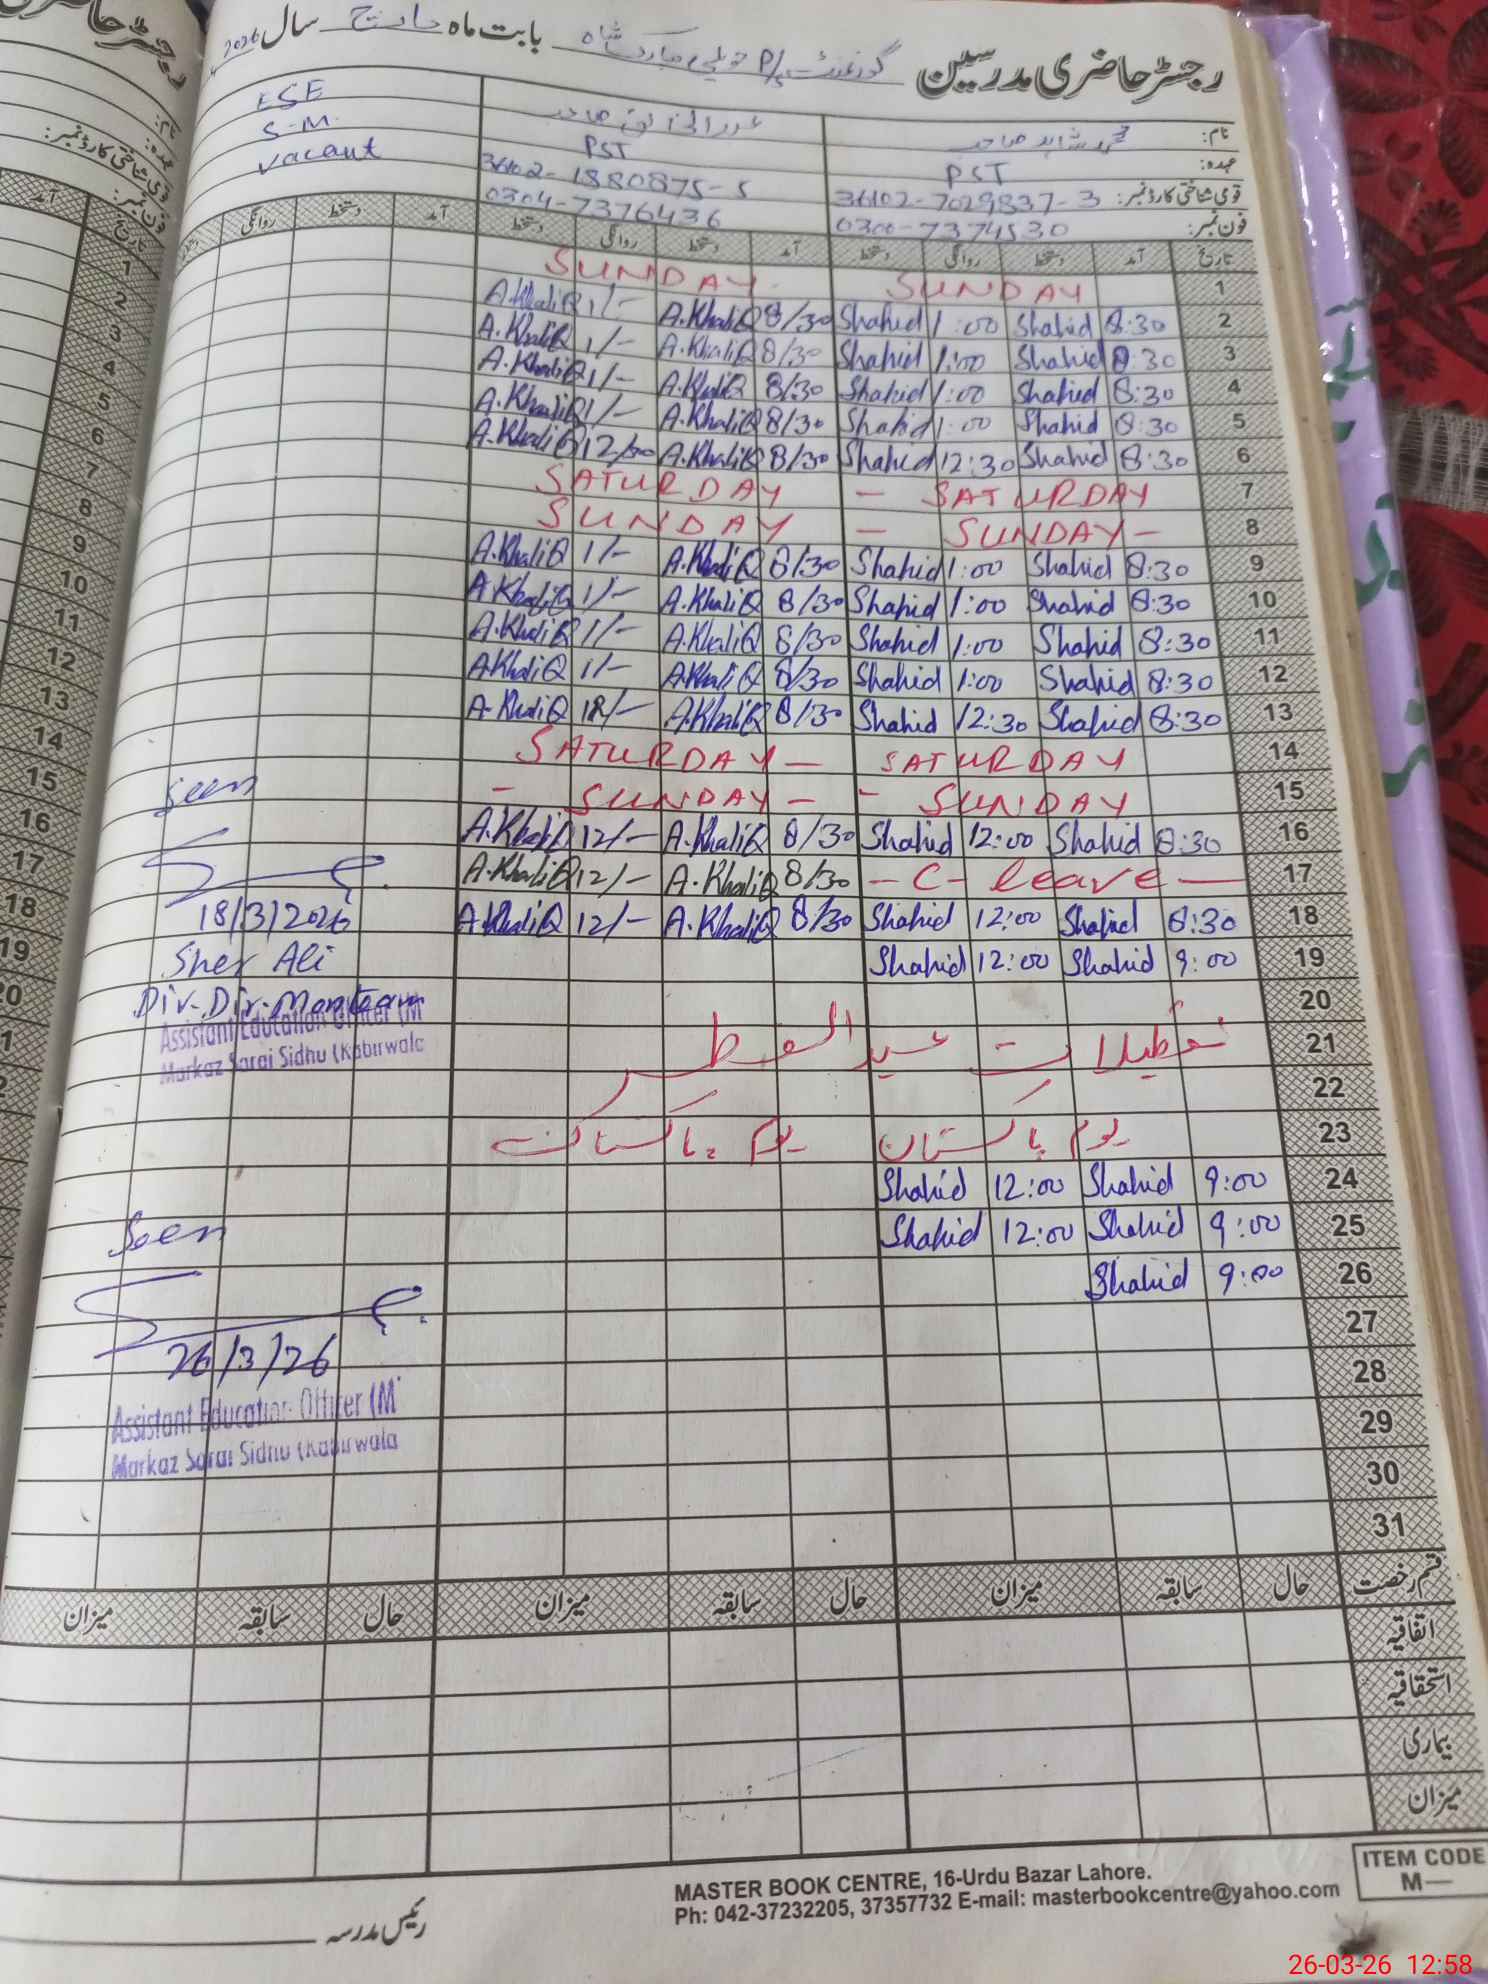 رجسٹر حاضری مدرسین گورنمنٹ P/S حویلی مبارک شاہ بابت ماہ مارچ سال 2026
نام: محمد شاہد صاحب عبدالخالق صاحب ESE
عہدہ: PST PST S-M.
قومی شناختی کارڈ نمبر: 36102-7029837-3 36102-1880875-5 vacant
فون نمبر: 0300-7374530 0304-7376436
تاریخ آمد دستخط روانگی دستخط آمد دستخط روانگی دستخط آمد دستخط روانگی دستخط
1 SUNDAY SUNDAY
2 8:30 Shahid 1:00 Shahid 8/30 A.KhaliQ 1/- A.KhaliQ
3 8:30 Shahid 1:00 Shahid 8/30 A.KhaliQ 1/- A.KhaliQ
4 8:30 Shahid 1:00 Shahid 8/30 A.KhaliQ 1/- A.KhaliQ
5 8:30 Shahid 1:00 Shahid 8/30 A.KhaliQ 1/- A.KhaliQ
6 8:30 Shahid 12:30 Shahid 8/30 A.KhaliQ A.KhaliQ
7 SATURDAY - SATURDAY
8 SUNDAY - SUNDAY -
9 8:30 Shahid 1:00 Shahid 8/30 A.KhaliQ 1/- A.KhaliQ
10 8:30 Shahid 1:00 Shahid 8/30 A.KhaliQ 1/- A.KhaliQ
11 8:30 Shahid 1:00 Shahid 8/30 A.KhaliQ 1/- A.KhaliQ
12 8:30 Shahid 1:00 Shahid 8/30 A.KhaliQ 1/- A.KhaliQ
13 8:30 Shahid 12:30 Shahid 8/30 A.KhaliQ A.KhaliQ
14 SATURDAY SATURDAY -
15 - SUNDAY - SUNDAY -
seen
16 8:30 Shahid 12:00 Shahid 8/30 A.KhaliQ 12/- A.KhaliQ
17 - C- leave - 8/30 A.KhaliQ 12/- A.KhaliQ
18 8:30 Shahid 12:00 Shahid 8/30 A.KhaliQ 12/- A.KhaliQ
18/3/2026
19 9:00 Shahid 12:00 Shahid
Sher Ali
20
Div. Dir. Monteam
Assistant Education Officer (M
Markaz Sarai Sidhu (Kabirwala
21 تعطیلات عید الفطر
22
23 یوم پاکستان یوم پاکستان
24 9:00 Shahid 12:00 Shahid
25 9:00 Shahid 12:00 Shahid
Seen
26 9:00 Shahid
27
26/3/26
28
Assistant Education Officer (M
Markaz Sarai Sidhu (Kabirwala
29
30
31
قسم رخصت حال سابقہ میزان حال سابقہ میزان حال سابقہ میزان
اتفاقیہ
استحقاقیہ
بیماری
میزان
ITEM CODE
M—
MASTER BOOK CENTRE, 16-Urdu Bazar Lahore.
Ph: 042-37232205, 37357732 E-mail: masterbookcentre@yahoo.com
رئیس مدرسہ
26-03-26 12:58
رجسٹر حاضری
نام:
عہدہ:
قومی شناختی کارڈ نمبر:
فون نمبر:
تاریخ آمد
1
2
3
4
5
6
7
8
9
10
11
12
13
14
15
16
17
18
19
20